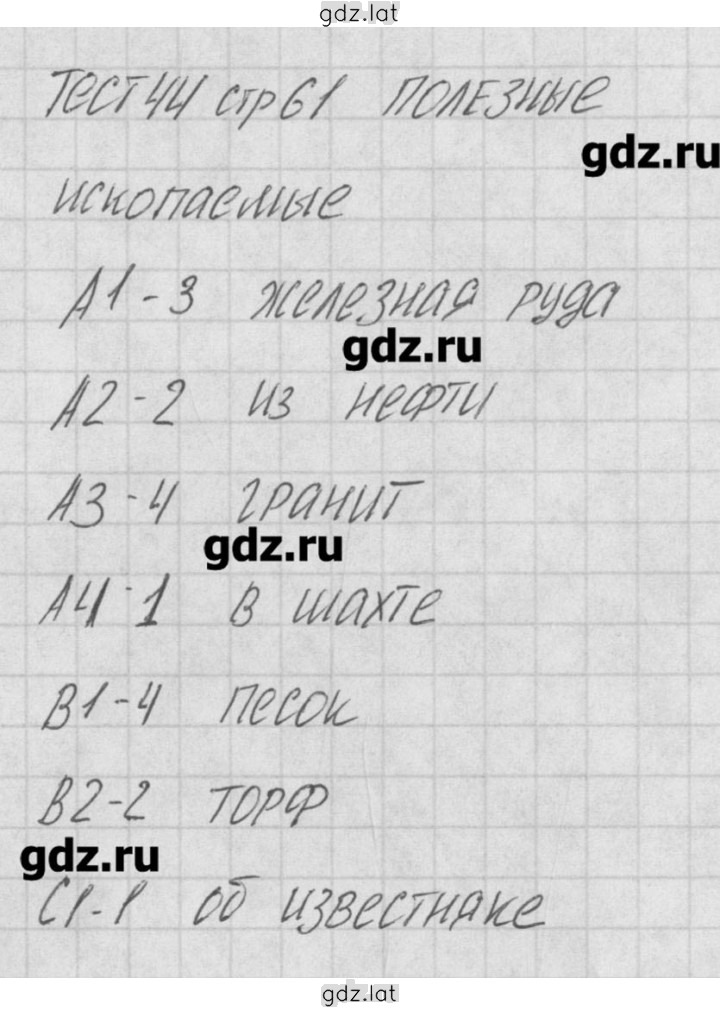 gdz.lat
Тест 44 стр 61 полезные
gdz.ru
ископаемые
А1-3 железная руда
gdz.ru
А2-2 из нефти
А3-4 гранит
gdz.ru
А4-1 в шахте
В1-4 песок
В2-2 торф
gdz.ru
С1-1 об известняке
gdz.lat